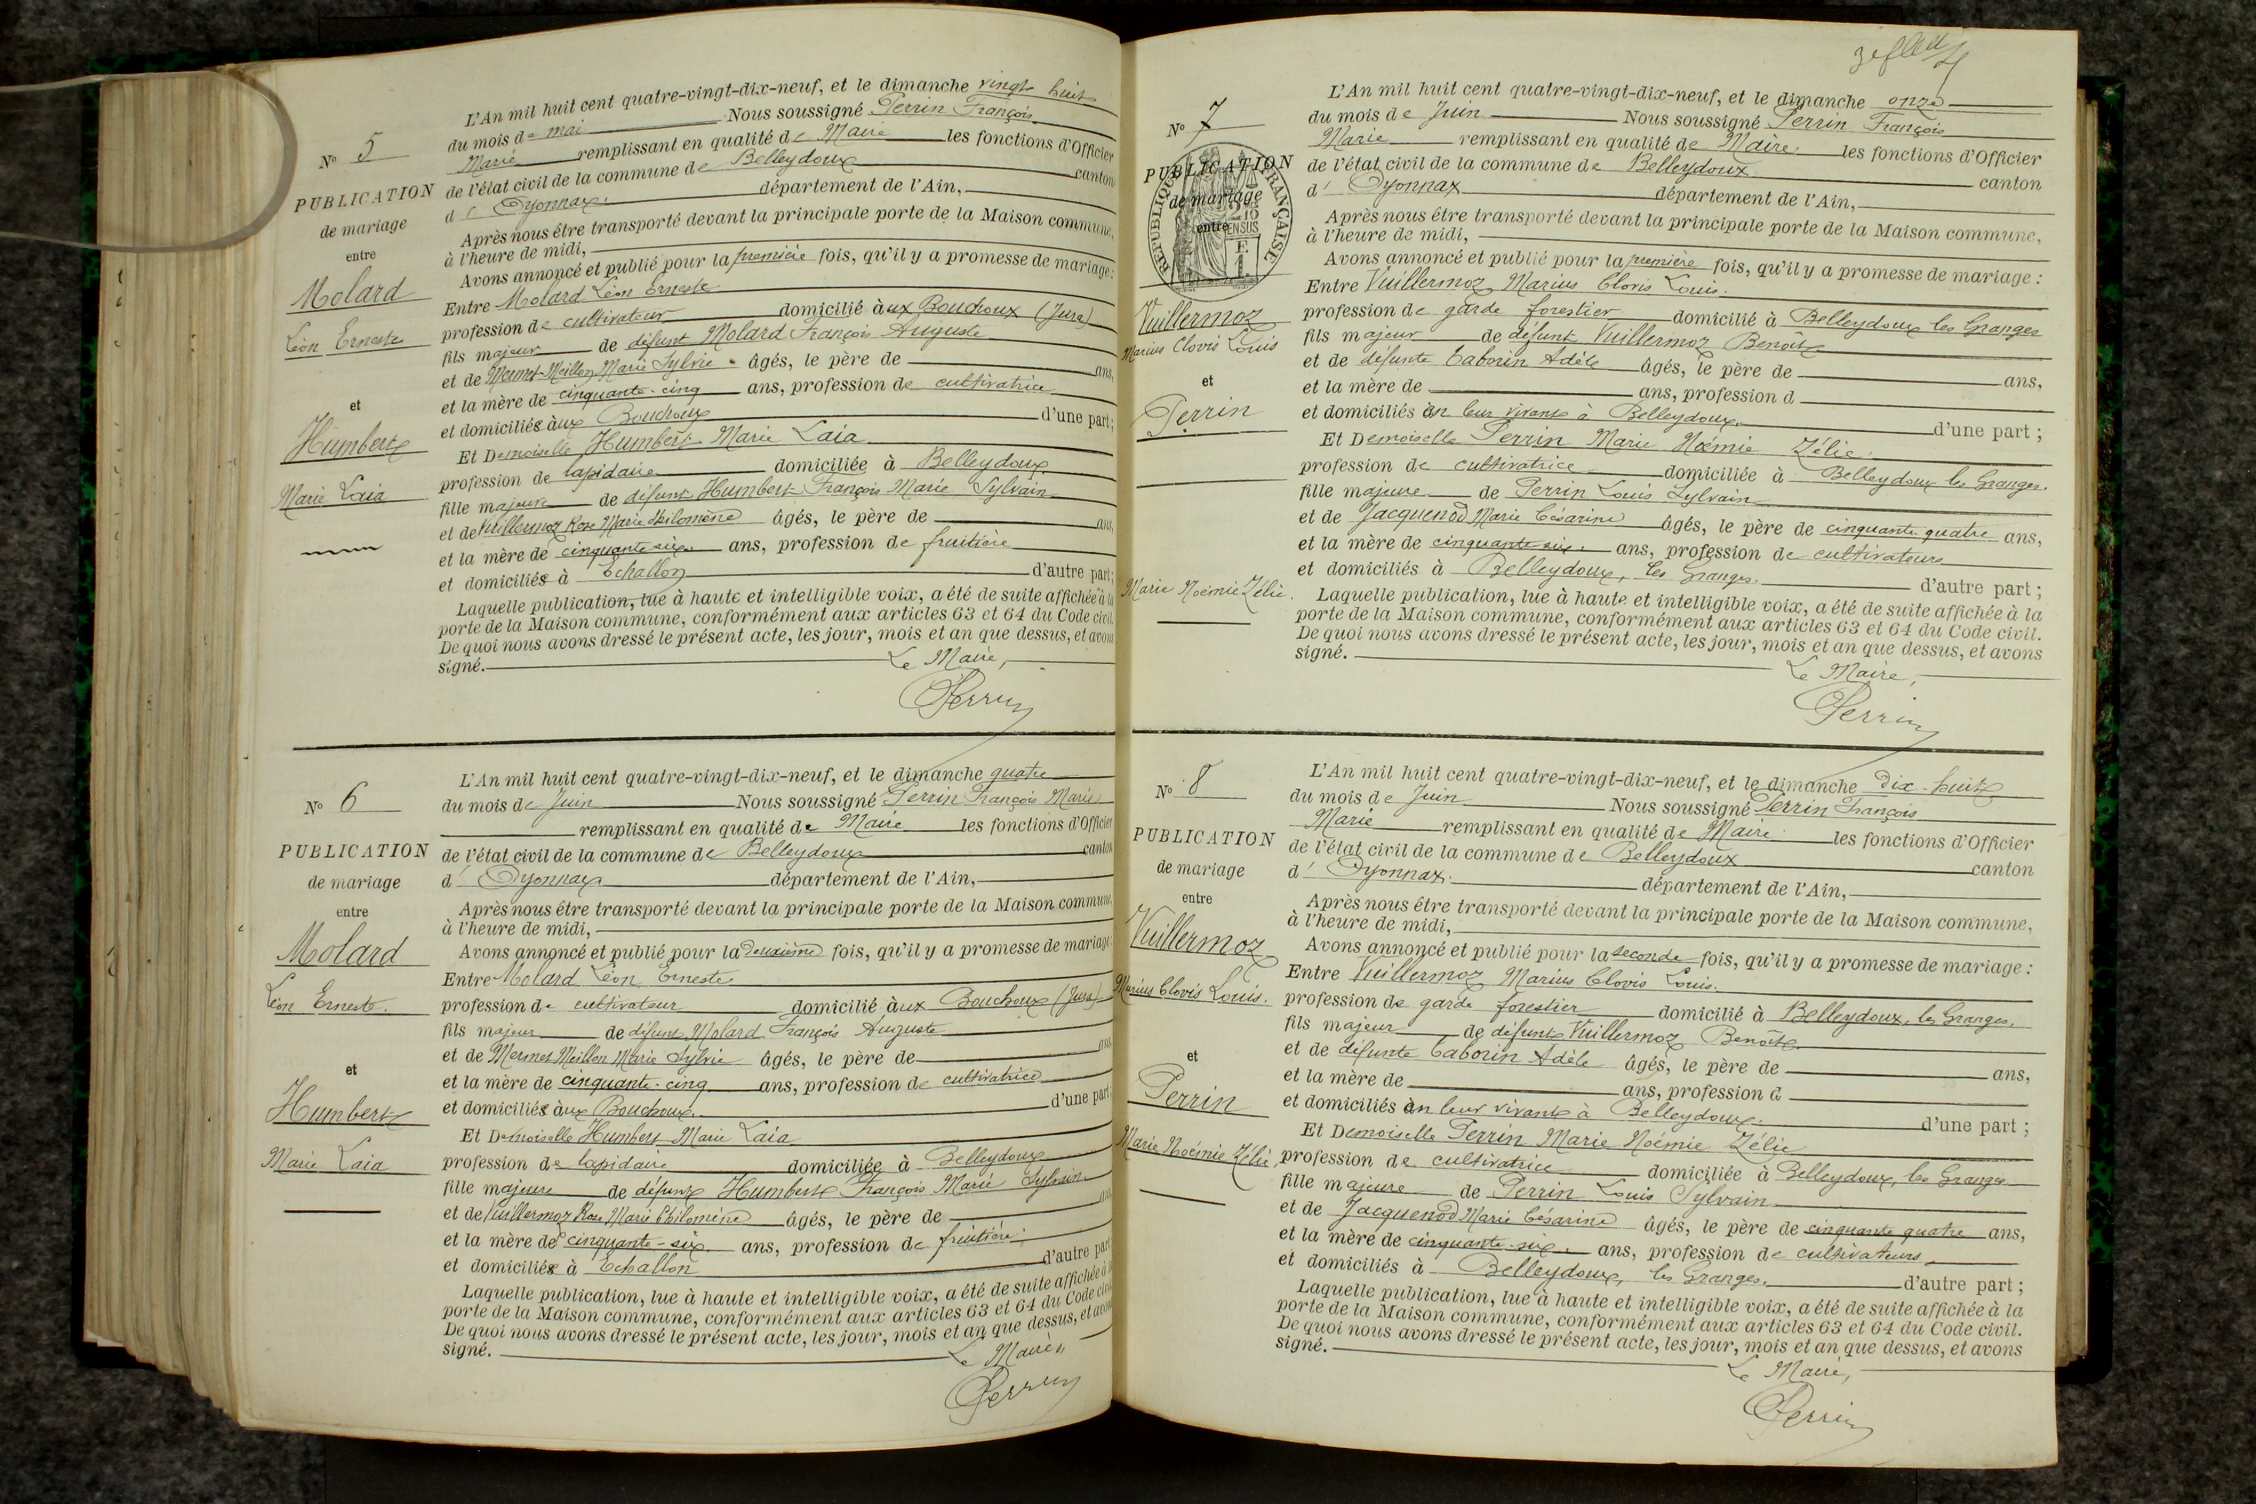 N° 5
PUBLICATION
de mariage
entre
Molard
Léon Erneste
et
Humbert
Marie Laia
L'An mil huit cent quatre-vingt-dix-neuf, et le dimanche vingt huit
du mois de mai Nous soussigné Perrin François
Marie remplissant en qualité de Maire les fonctions d'Officier
de l'état civil de la commune de Belleydoux canton
d' Oyonnax. département de l'Ain,
Après nous être transporté devant la principale porte de la Maison commune,
à l'heure de midi,
Avons annoncé et publié pour la première fois, qu'il y a promesse de mariage:
Entre Molard Léon Erneste
profession de cultivateur domicilié aux Bouchoux (Jura)
fils majeur de défunt Molard François Auguste
et de Mermet-Meillon Marie Sylvie âgés, le père de ans,
et la mère de cinquante-cinq ans, profession de cultivatrice
et domiciliés aux Bouchoux d'une part;
Et Demoiselle Humbert Marie Laia
profession de lapidaire domiciliée à Belleydoux
fille majeure de défunt Humbert François Marie Sylvain
et de Vuillermoz Rose Marie Philomène âgés, le père de ans,
et la mère de cinquante-six ans, profession de fruitière
et domiciliés à Echallon d'autre part;
Laquelle publication, lue à haute et intelligible voix, a été de suite affichée à la
porte de la Maison commune, conformément aux articles 63 et 64 du Code civil.
De quoi nous avons dressé le présent acte, les jour, mois et an que dessus, et avons
signé. Le Maire,
Perrin
N° 6
PUBLICATION
de mariage
entre
Molard
Léon Erneste.
et
Humbert
Marie Laia
L'An mil huit cent quatre-vingt-dix-neuf, et le dimanche quatre
du mois de Juin Nous soussigné Perrin François Marie
remplissant en qualité de Maire les fonctions d'Officier
de l'état civil de la commune de Belleydoux canton
d' Oyonnax département de l'Ain,
Après nous être transporté devant la principale porte de la Maison commune,
à l'heure de midi,
Avons annoncé et publié pour la deuxième fois, qu'il y a promesse de mariage:
Entre Molard Léon Erneste
profession de cultivateur domicilié aux Bouchoux (Jura)
fils majeur de défunt Molard François Auguste
et de Mermet Meillon Marie Sylvie âgés, le père de ans
et la mère de cinquante-cinq ans, profession de cultivatrice
et domiciliés aux Bouchoux. d'une part
Et Demoiselle Humbert Marie Laia
profession de lapidaire domiciliée à Belleydoux
fille majeure de défunt Humbert François Marie Sylvain
et de Vuillermoz Rose Marie Philomène âgés, le père de ans
et la mère de cinquante-six ans, profession de fruitière
et domiciliés à Echallon d'autre part
Laquelle publication, lue à haute et intelligible voix, a été de suite affichée à la
porte de la Maison commune, conformément aux articles 63 et 64 du Code civil
De quoi nous avons dressé le présent acte, les jour, mois et an que dessus, et avons
signé. Le Maire
Perrin
N° 7
PUBLICATION
de mariage
entre
RÉPUBLIQUE FRANÇAISE
Vuillermoz
Marius Clovis Louis
et
Perrin
Marie Noémie Zélie.
L'An mil huit cent quatre-vingt-dix-neuf, et le dimanche onze
du mois de Juin Nous soussigné Perrin François
Marie remplissant en qualité de Maire les fonctions d'Officier
de l'état civil de la commune de Belleydoux canton
d' Oyonnax département de l'Ain,
Après nous être transporté devant la principale porte de la Maison commune,
à l'heure de midi,
Avons annoncé et publié pour la première fois, qu'il y a promesse de mariage:
Entre Vuillermoz Marius Clovis Louis.
profession de garde forestier domicilié à Belleydoux les Granges
fils majeur de défunt Vuillermoz Benoît
et de défunte Taborin Adèle âgés, le père de ans,
et la mère de ans, profession d
et domiciliés en leur vivant à Belleydoux. d'une part;
Et Demoiselle Perrin Marie Noémie Zélie.
profession de cultivatrice domiciliée à Belleydoux les Granges.
fille majeure de Perrin Louis Sylvain
et de Jacquenod Marie Césarine âgés, le père de cinquante quatre ans,
et la mère de cinquante-six ans, profession de cultivateurs
et domiciliés à Belleydoux, les Granges. d'autre part;
Laquelle publication, lue à haute et intelligible voix, a été de suite affichée à la
porte de la Maison commune, conformément aux articles 63 et 64 du Code civil.
De quoi nous avons dressé le présent acte, les jour, mois et an que dessus, et avons
signé. Le Maire,
Perrin
N° 8
PUBLICATION
de mariage
entre
Vuillermoz
Marius Clovis Louis.
et
Perrin
Marie Noémie Zélie,
L'An mil huit cent quatre-vingt-dix-neuf, et le dimanche dix-huit
du mois de Juin Nous soussigné Perrin François
Marie remplissant en qualité de Maire les fonctions d'Officier
de l'état civil de la commune de Belleydoux canton
d' Oyonnax. département de l'Ain,
Après nous être transporté devant la principale porte de la Maison commune,
à l'heure de midi,
Avons annoncé et publié pour la seconde fois, qu'il y a promesse de mariage:
Entre Vuillermoz Marius Clovis Louis.
profession de garde forestier domicilié à Belleydoux, les Granges.
fils majeur de défunt Vuillermoz Benoît
et de défunte Taborin Adèle âgés, le père de ans,
et la mère de ans, profession d
et domiciliés en leur vivant à Belleydoux. d'une part;
Et Demoiselle Perrin Marie Noémie Zélie
profession de cultivatrice domiciliée à Belleydoux, les Granges
fille majeure de Perrin Louis Sylvain
et de Jacquenod Marie Césarine âgés, le père de cinquante quatre ans,
et la mère de cinquante-six ans, profession de cultivateurs
et domiciliés à Belleydoux, les Granges. d'autre part;
Laquelle publication, lue à haute et intelligible voix, a été de suite affichée à la
porte de la Maison commune, conformément aux articles 63 et 64 du Code civil.
De quoi nous avons dressé le présent acte, les jour, mois et an que dessus, et avons
signé. Le Maire,
Perrin